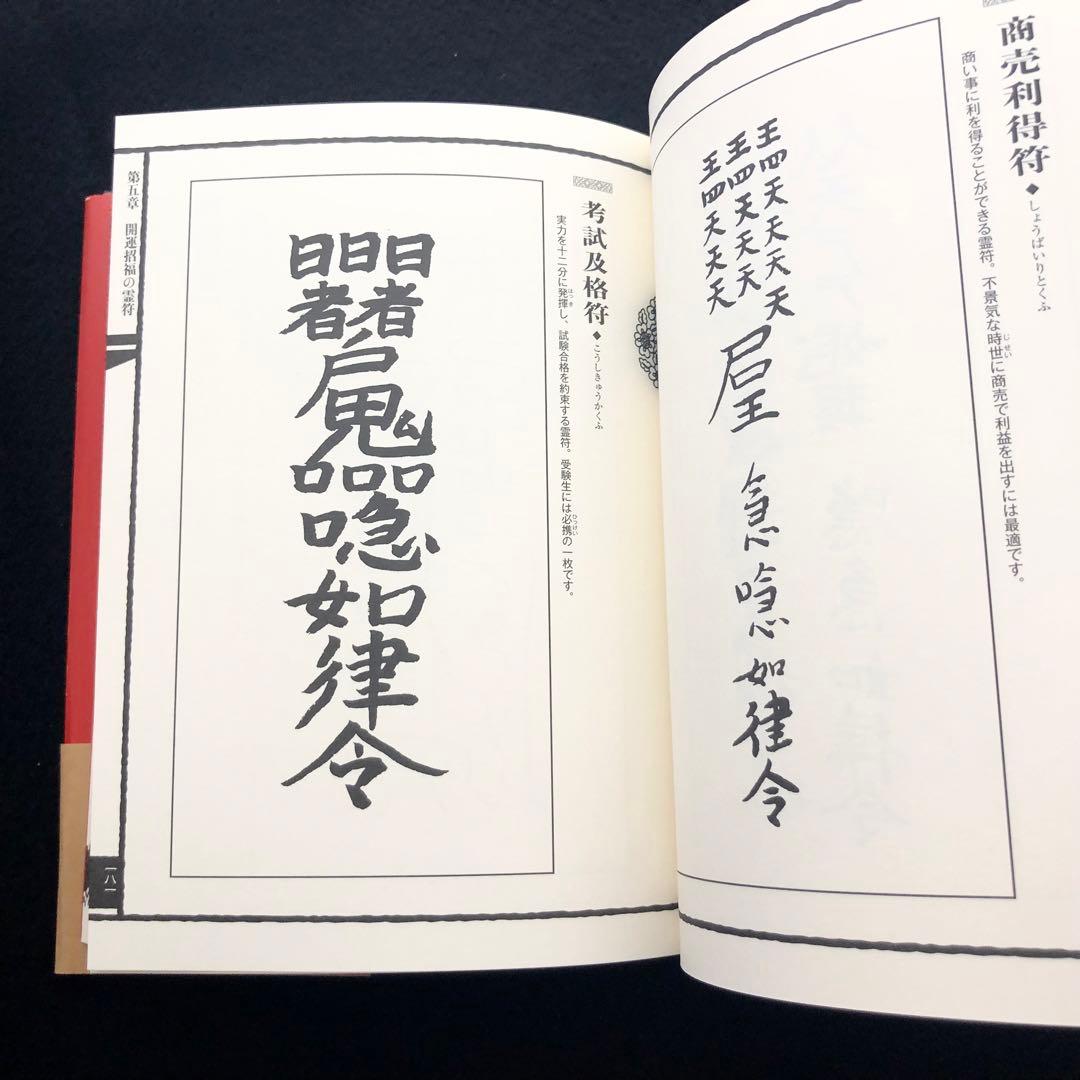 商売利得符◆しょうばいりとくふ
商い事に利を得ることができる霊符。不景気な時世に商売で利益を出すには最適です。
じせい
王四天天天天
王四天天天
王四天天天
急
唸
如
律
令
考試及格符◆こうしきゅうかくふ
実力を十二分に発揮し、試験合格を約束する霊符。受験生には必携の一枚です。
はっき
ひっけい
日日日
者者
鬼
口口口
如
律
令
第五章 開運招福の霊符
一八一